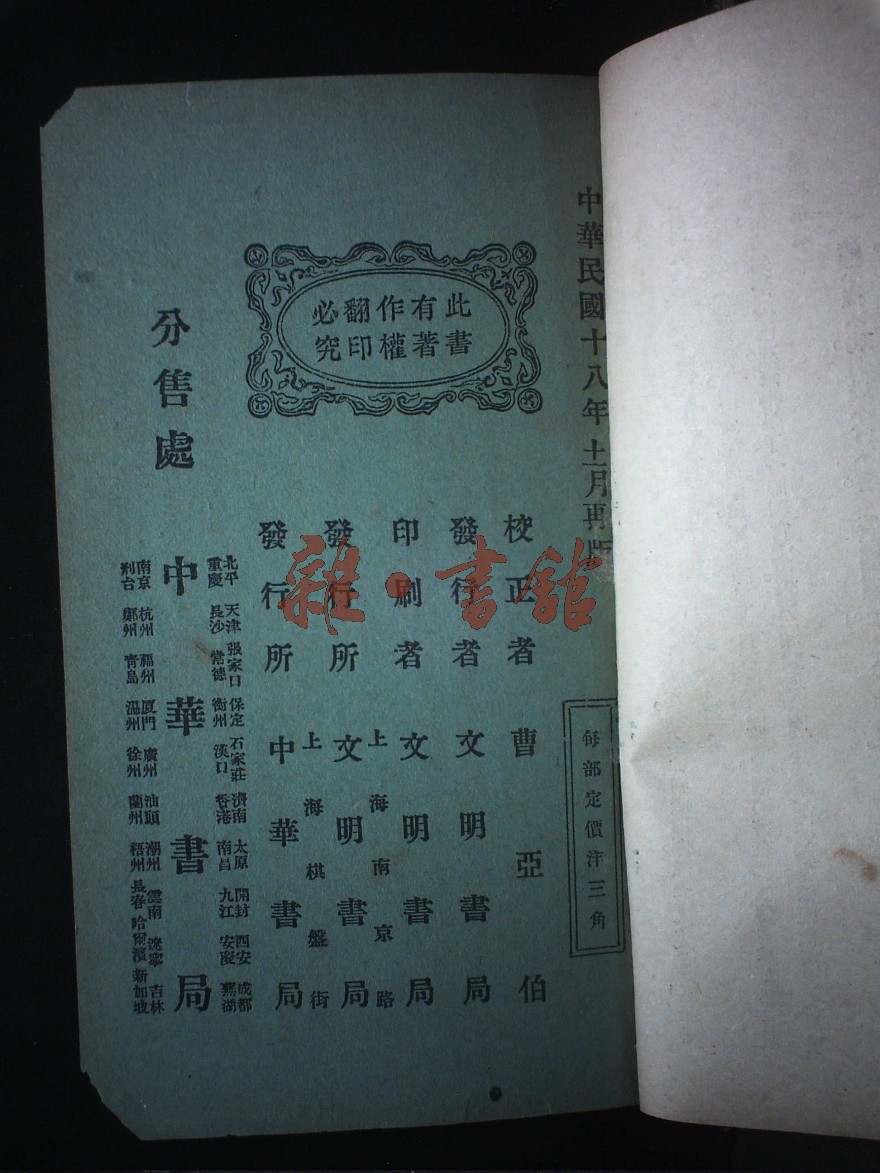 中華民國十八年十一月再版
每部定價洋三角
此書
有著
作權
翻印
必究
校正者 曹亞伯
發行者 文明書局
印刷者 文明書局
上海南京路
發行所 文明書局
上海棋盤街
發行所 中華書局
分售處
北平 天津 張家口 保定 石家莊 濟南 太原 開封 西安 成都
重慶 長沙 常德 衡州 漢口 香港 南昌 九江 安慶 蕪湖
中華書局
南京 杭州 福州 廈門 廣州 汕頭 潮州 雲南 遼寧 吉林
邢台 鄭州 青島 溫州 徐州 蘭州 梧州 長春 哈爾濱 新加坡
雜·書館